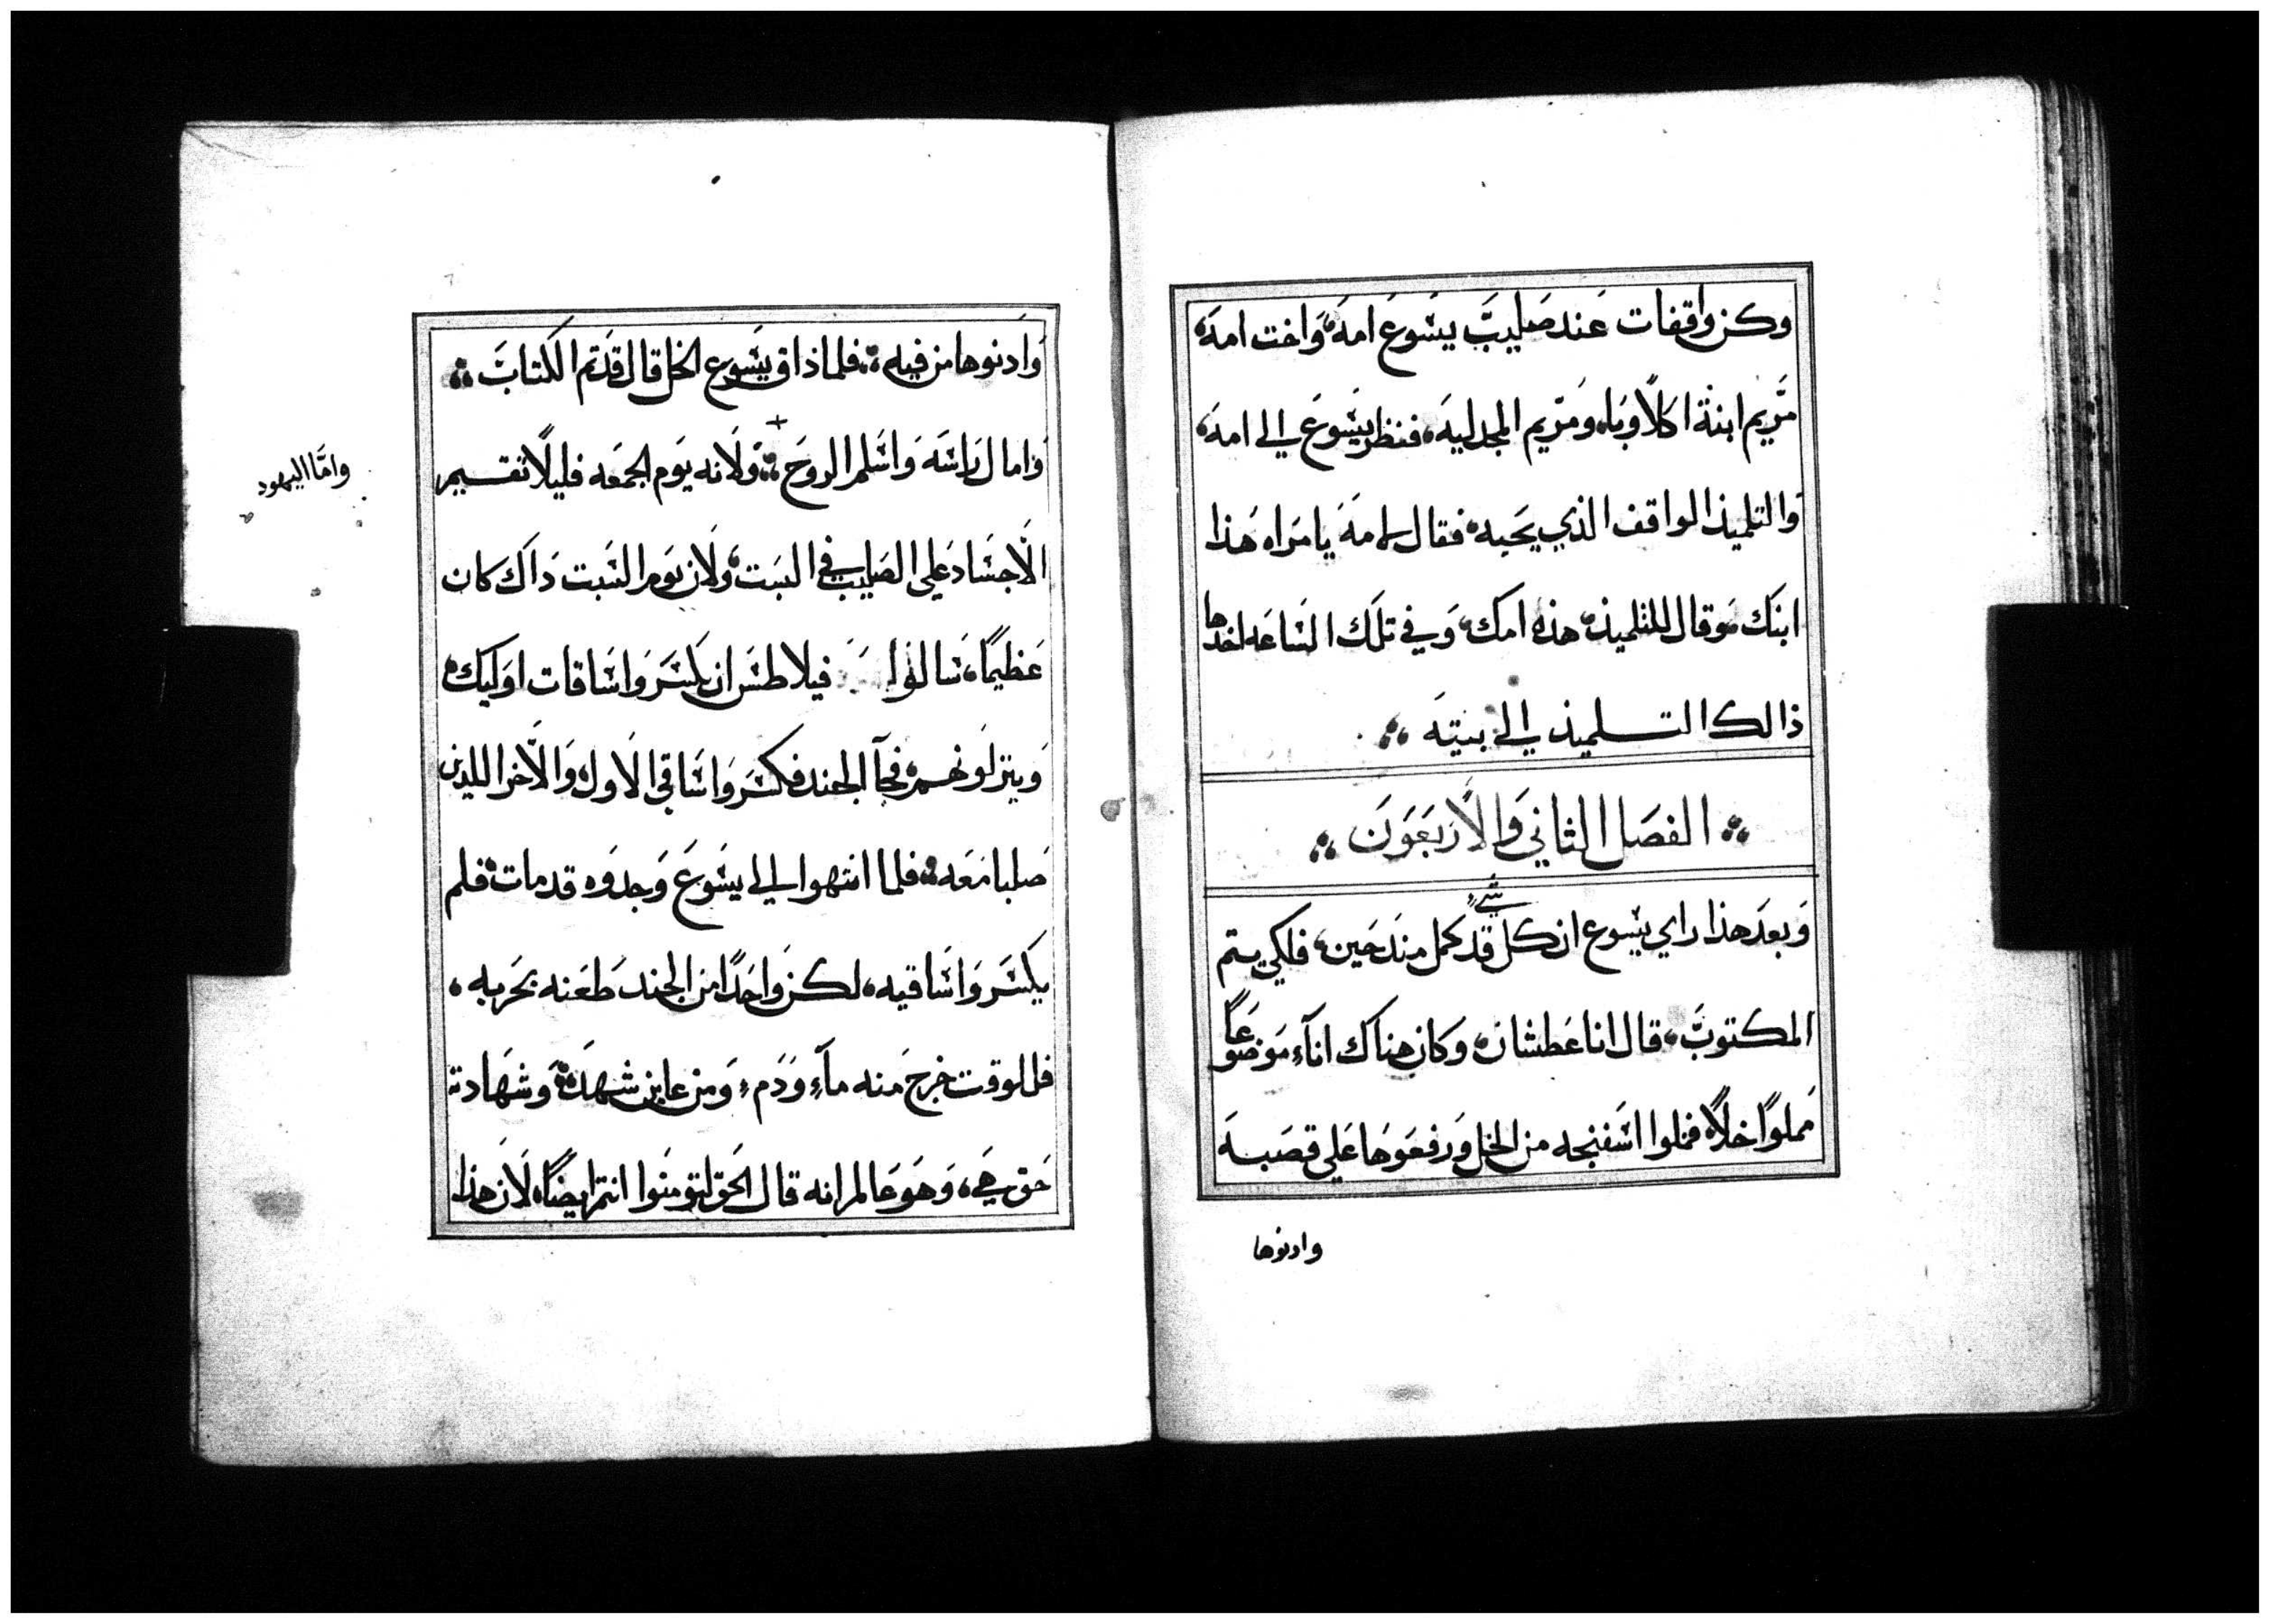 وكن واقفات عند صليب يسوع امه، واخت امه،
مريم ابنة اكلاوبا، ومريم المجدليه، فنظر يسوع الي امه،
والتلميذ الواقف الذي يحبه، فقال لامه يا مراه هذا
ابنك، وقال للتلميذ، هذه امك، وفي تلك الساعه اخذها
ذالك التلميذ الي بيته ∴
∴ الفصل الثاني والاربعون ∴
شي
وبعد هذا راي يسوع ان كل قد كمل منذ حين، فلكي يتم
المكتوب، قال انا عطشان، وكان هناك انآء موضوعاً
مملوًا خلاً، فملوا اسفنجه من الخل ورفعوها علي قصبه
وادنوها
وادنوها من فيه ∴ فلما ذاق يسوع الخل قال قد تم الكتاب ∴
وامال راسه واسلم الروح ∴ ولانه يوم الجمعه فليلا تقيم
وامّا اليهود
الاجساد علي الصليب في السبت، ولان يوم السبت ذاك كان
عظيمًا، سالوا فيلاطس ان يكسروا ساقات اوليك،
وينزلونهم، فجآ الجند فكسروا ساقي الاول، والآخر اللذين
صلبا معه، فلما انتهوا الي يسوع وجدوه قد مات، فلم
يكسروا ساقيه، لكن واحدًا من الجند طعنه بحربه،
فللوقت خرج منه مآء ودم، ومن عاين شهد، وشهادته
حق هي، وهو عالم انه قال الحق لتومنوا انتم ايضًا، لان هذا